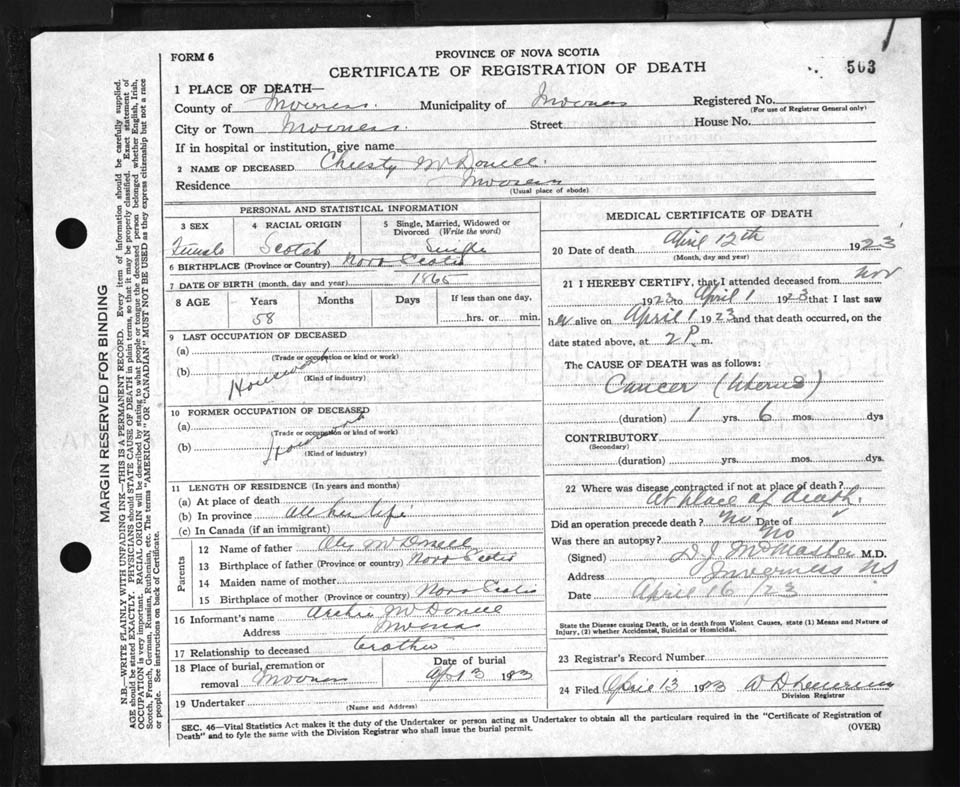 FORM 6
PROVINCE OF NOVA SCOTIA
CERTIFICATE OF REGISTRATION OF DEATH
503
1 PLACE OF DEATH—
County of Inverness. Municipality of Inverness Registered No.
(For use of Registrar General only)
City or Town Inverness. Street House No.
If in hospital or institution, give name
2 NAME OF DECEASED Christy McDonell.
Residence Inverness
(Usual place of abode)
PERSONAL AND STATISTICAL INFORMATION
3 SEX 4 RACIAL ORIGIN 5 Single, Married, Widowed or Divorced (Write the word)
Female Scotch Single
6 BIRTHPLACE (Province or Country) Nova Scotia
7 DATE OF BIRTH (month, day and year) 1865
8 AGE Years Months Days If less than one day,
58 hrs. or min.
9 LAST OCCUPATION OF DECEASED
(a)
(Trade or occupation or kind or work)
(b) Housework
(Kind of industry)
10 FORMER OCCUPATION OF DECEASED
(a)
(Trade or occupation or kind or work)
(b) Housework
(Kind of industry)
11 LENGTH OF RESIDENCE (In years and months)
(a) At place of death
(b) In province all her life
(c) In Canada (if an immigrant)
Parents
12 Name of father McDonell
13 Birthplace of father (Province or country) Nova Scotia
14 Maiden name of mother
15 Birthplace of mother (Province or country) Nova Scotia
16 Informant's name Archie McDonell
Address Inverness
17 Relationship to deceased brother
18 Place of burial, cremation or removal Inverness
Date of burial
19 Undertaker
(Name and Address)
MEDICAL CERTIFICATE OF DEATH
20 Date of death April 12th 1923
(Month, day and year)
21 I HEREBY CERTIFY, that I attended deceased from Nov
1923 to April 1 1923 that I last saw
her alive on April 1 1923 and that death occurred, on the
date stated above, at 2 P. m.
The CAUSE OF DEATH was as follows:
Cancer (Uterus)
(duration) 1 yrs. 6 mos. dys
CONTRIBUTORY
(Secondary)
(duration) yrs. mos. dys.
22 Where was disease contracted if not at place of death?
At place of death.
Did an operation precede death? No Date of
Was there an autopsy? No
(Signed) D J McMaster M.D.
Address Inverness NS
Date April 16 / 23
State the Disease causing Death, or in death from Violent Causes, state (1) Means and Nature of
Injury, (2) whether Accidental, Suicidal or Homicidal.
23 Registrar's Record Number
24 Filed April 13 1923
Division Registrar
SEC. 46—Vital Statistics Act makes it the duty of the Undertaker or person acting as Undertaker to obtain all the particulars required in the "Certificate of Registration of
Death" and to fyle the same with the Division Registrar who shall issue the burial permit.
(OVER)
MARGIN RESERVED FOR BINDING
N.B.—WRITE PLAINLY WITH UNFADING INK—THIS IS A PERMANENT RECORD. Every item of information should be carefully supplied.
AGE should be stated EXACTLY. PHYSICIANS should STATE CAUSE OF DEATH in plain terms, so that it may be properly classified. Exact statement of
OCCUPATION is very important. RACIAL ORIGIN will be described by stating to what people or tongue the deceased person belonged whether English, Irish,
Scotch, French, German, Russian, Ruthenian, etc. The terms "AMERICAN" OR "CANADIAN" MUST NOT BE USED as they express citizenship but not a race
or people. See instructions on back of Certificate.